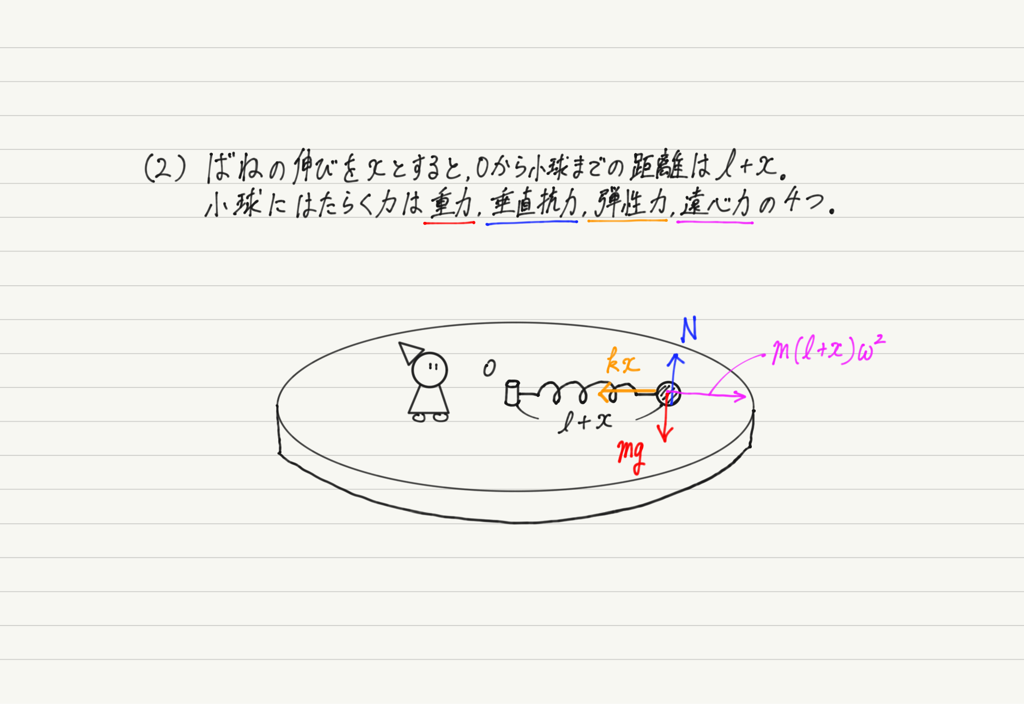 (2) ばねの伸びをxとすると,Oから小球までの距離はl+x.
小球にはたらく力は重力,垂直抗力,弾性力,遠心力の4つ.
N
m(l+x)ω²
O
kx
l+x
mg